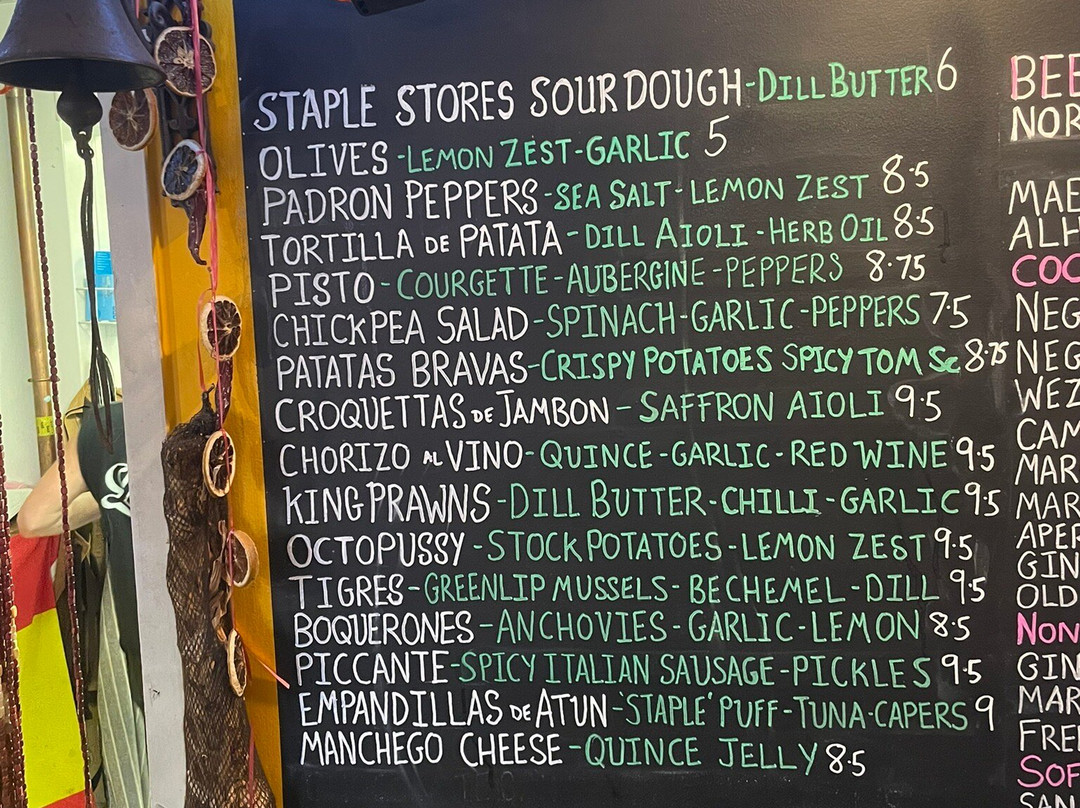 STAPLE STORES SOURDOUGH-DILL BUTTER 6
OLIVES-LEMON ZEST-GARLIC 5
PADRON PEPPERS-SEA SALT-LEMON ZEST 8·5
TORTILLA DE PATATA-DILL AIOLI-HERB OIL 8·5
PISTO-COURGETTE-AUBERGINE-PEPPERS 8·75
CHICKPEA SALAD-SPINACH-GARLIC-PEPPERS 7·5
PATATAS BRAVAS-CRISPY POTATOES SPICY TOM Sc 8·75
CROQUETTAS DE JAMBON-SAFFRON AIOLI 9·5
CHORIZO AL VINO-QUINCE-GARLIC-RED WINE 9·5
KING PRAWNS-DILL BUTTER-CHILLI-GARLIC 9·5
OCTOPUSSY-STOCK POTATOES-LEMON ZEST 9·5
TIGRES-GREENLIP MUSSELS-BECHEMEL-DILL 9·5
BOQUERONES-ANCHOVIES-GARLIC-LEMON 8·5
PICCANTE-SPICY ITALIAN SAUSAGE-PICKLES 9·5
EMPANDILLAS DE ATUN-'STAPLE' PUFF-TUNA·CAPERS 9
MANCHEGO CHEESE-QUINCE JELLY 8·5
BEE
NOR
MAE
ALH
COC
NEG
NEG
WEZ
CAM
MAR
MAR
APER
GIN
OLD
NON
GIN
MAR
FRE
SOF
SAN